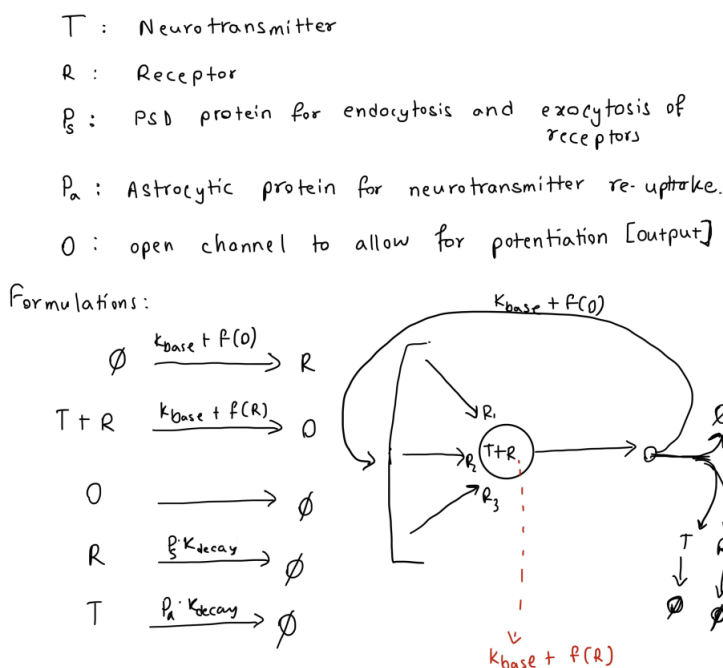 T : Neurotransmitter
R : Receptor
Ps : PSD protein for endocytosis and exocytosis of
receptors
Pa : Astrocytic protein for neurotransmitter re-uptake.
O : open channel to allow for potentiation [output]
Formulations:
∅ Kbase + f(O) → R
T + R Kbase + f(R) → O
O → ∅
R Ps·Kdecay → ∅
T Pa·Kdecay → ∅
Kbase + f(O)
R1
R2 T+R O
R3
∅
T R
∅ ∅
Kbase + f(R)